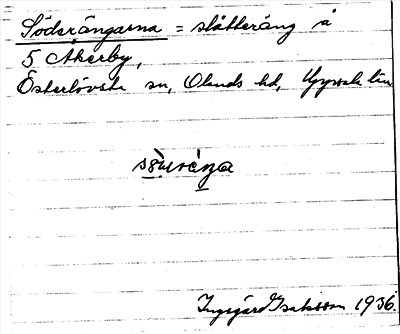 Söderängarna = slåtteräng å
5 Åkerby,
Österlövsta sn, Olands hd, Uppsala län
Ingegärd Isaksson 1936.